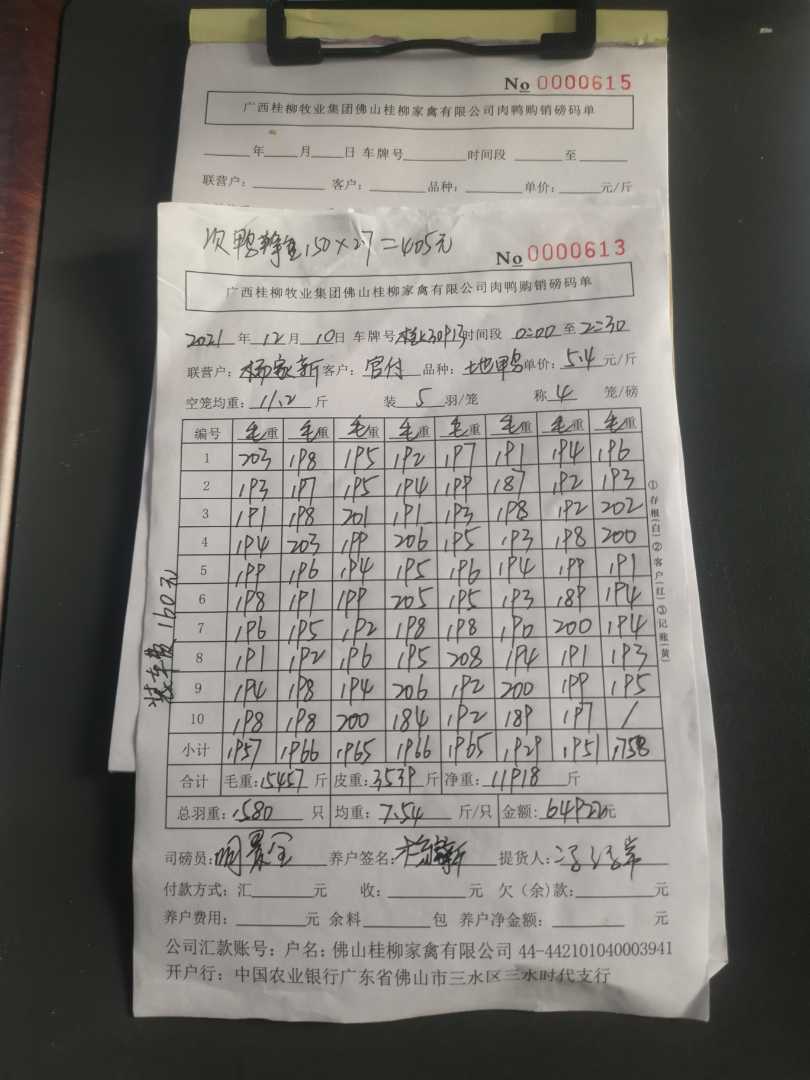 No 0000615
广西桂柳牧业集团佛山桂柳家禽有限公司肉鸭购销磅码单
年 月 日 车牌号 时间段 至
联营户: 客户: 品种: 单价: 元/斤
次鸭 150×27=405元
No 0000613
广西桂柳牧业集团佛山桂柳家禽有限公司肉鸭购销磅码单
2021 年 12 月 10 日 车牌号 时间段 0:00 至 2:30
联营户: 杨家新 客户: 官付 品种: 地鸭 单价: 5.4 元/斤
空笼均重: 11.2 斤 装 5 羽/笼 称 4 笼/磅
编号 毛重 毛重 毛重 毛重 毛重 毛重 毛重 毛重
1 203 198 195 192 197 191 194 196
2 193 197 195 194 199 187 192 193
3 191 198 201 191 193 198 192 202
4 194 203 199 206 195 193 198 200
5 199 196 194 195 196 194 199 191
6 198 191 199 205 195 193 189 194
7 196 195 192 198 198 190 200 194
8 191 192 196 195 208 194 191 193
9 194 198 194 206 192 200 199 195
10 198 198 200 184 192 189 197 /
小计 1957 1966 1965 1966 1965 1929 1951 1758
合计 毛重: 15457 斤 皮重: 3539 斤 净重: 11918 斤
总羽重: 1580 只 均重: 7.54 斤/只 金额: 64922元
司磅员: 养户签名: 提货人:
付款方式: 汇 元 收: 元 欠(余)款: 元
养户费用: 元 余料 包 养户净金额: 元
公司汇款账号: 户名: 佛山桂柳家禽有限公司 44-442101040003941
开户行: 中国农业银行广东省佛山市三水区三水时代支行
①存根(白)②客户(红)③记账(黄)
装车费 160元